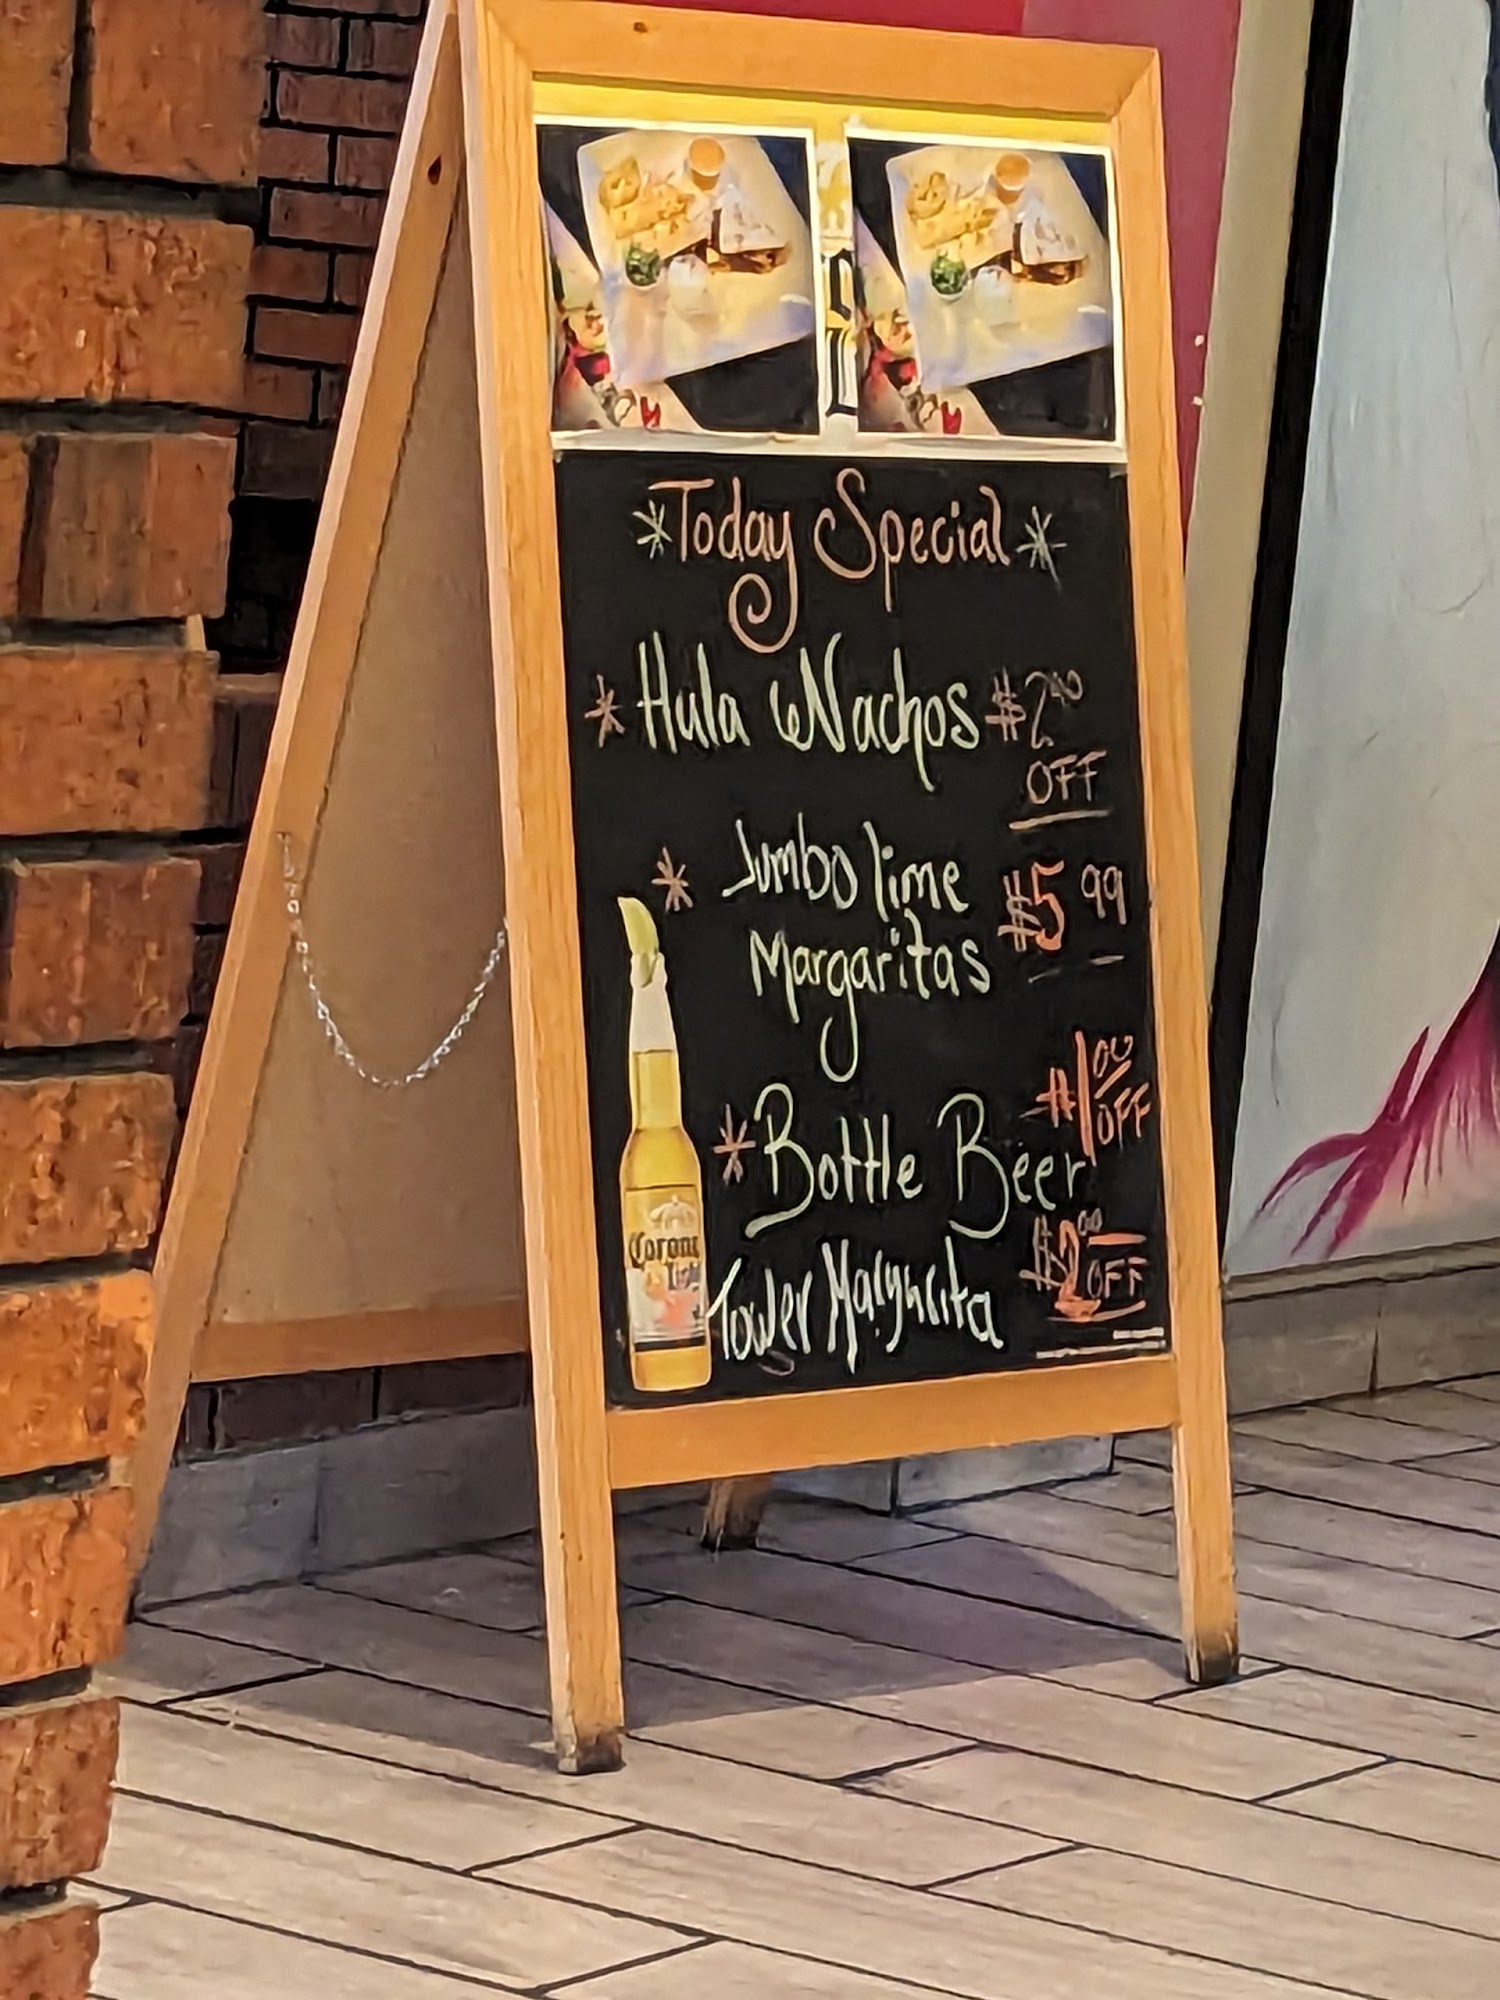 *Today Special*
* Hula Nachos $2.00
OFF
* Jumbo lime $5.99
Margaritas
$1.00
OFF
* Bottle Beer
$2.00
OFF
Tower Margarita
Corona
Light